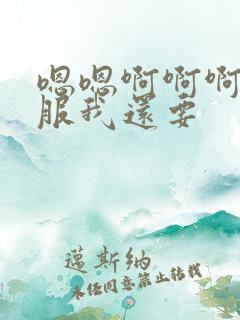 嗯嗯啊啊啊
服我還要
邁斯納
未经同意禁止转载